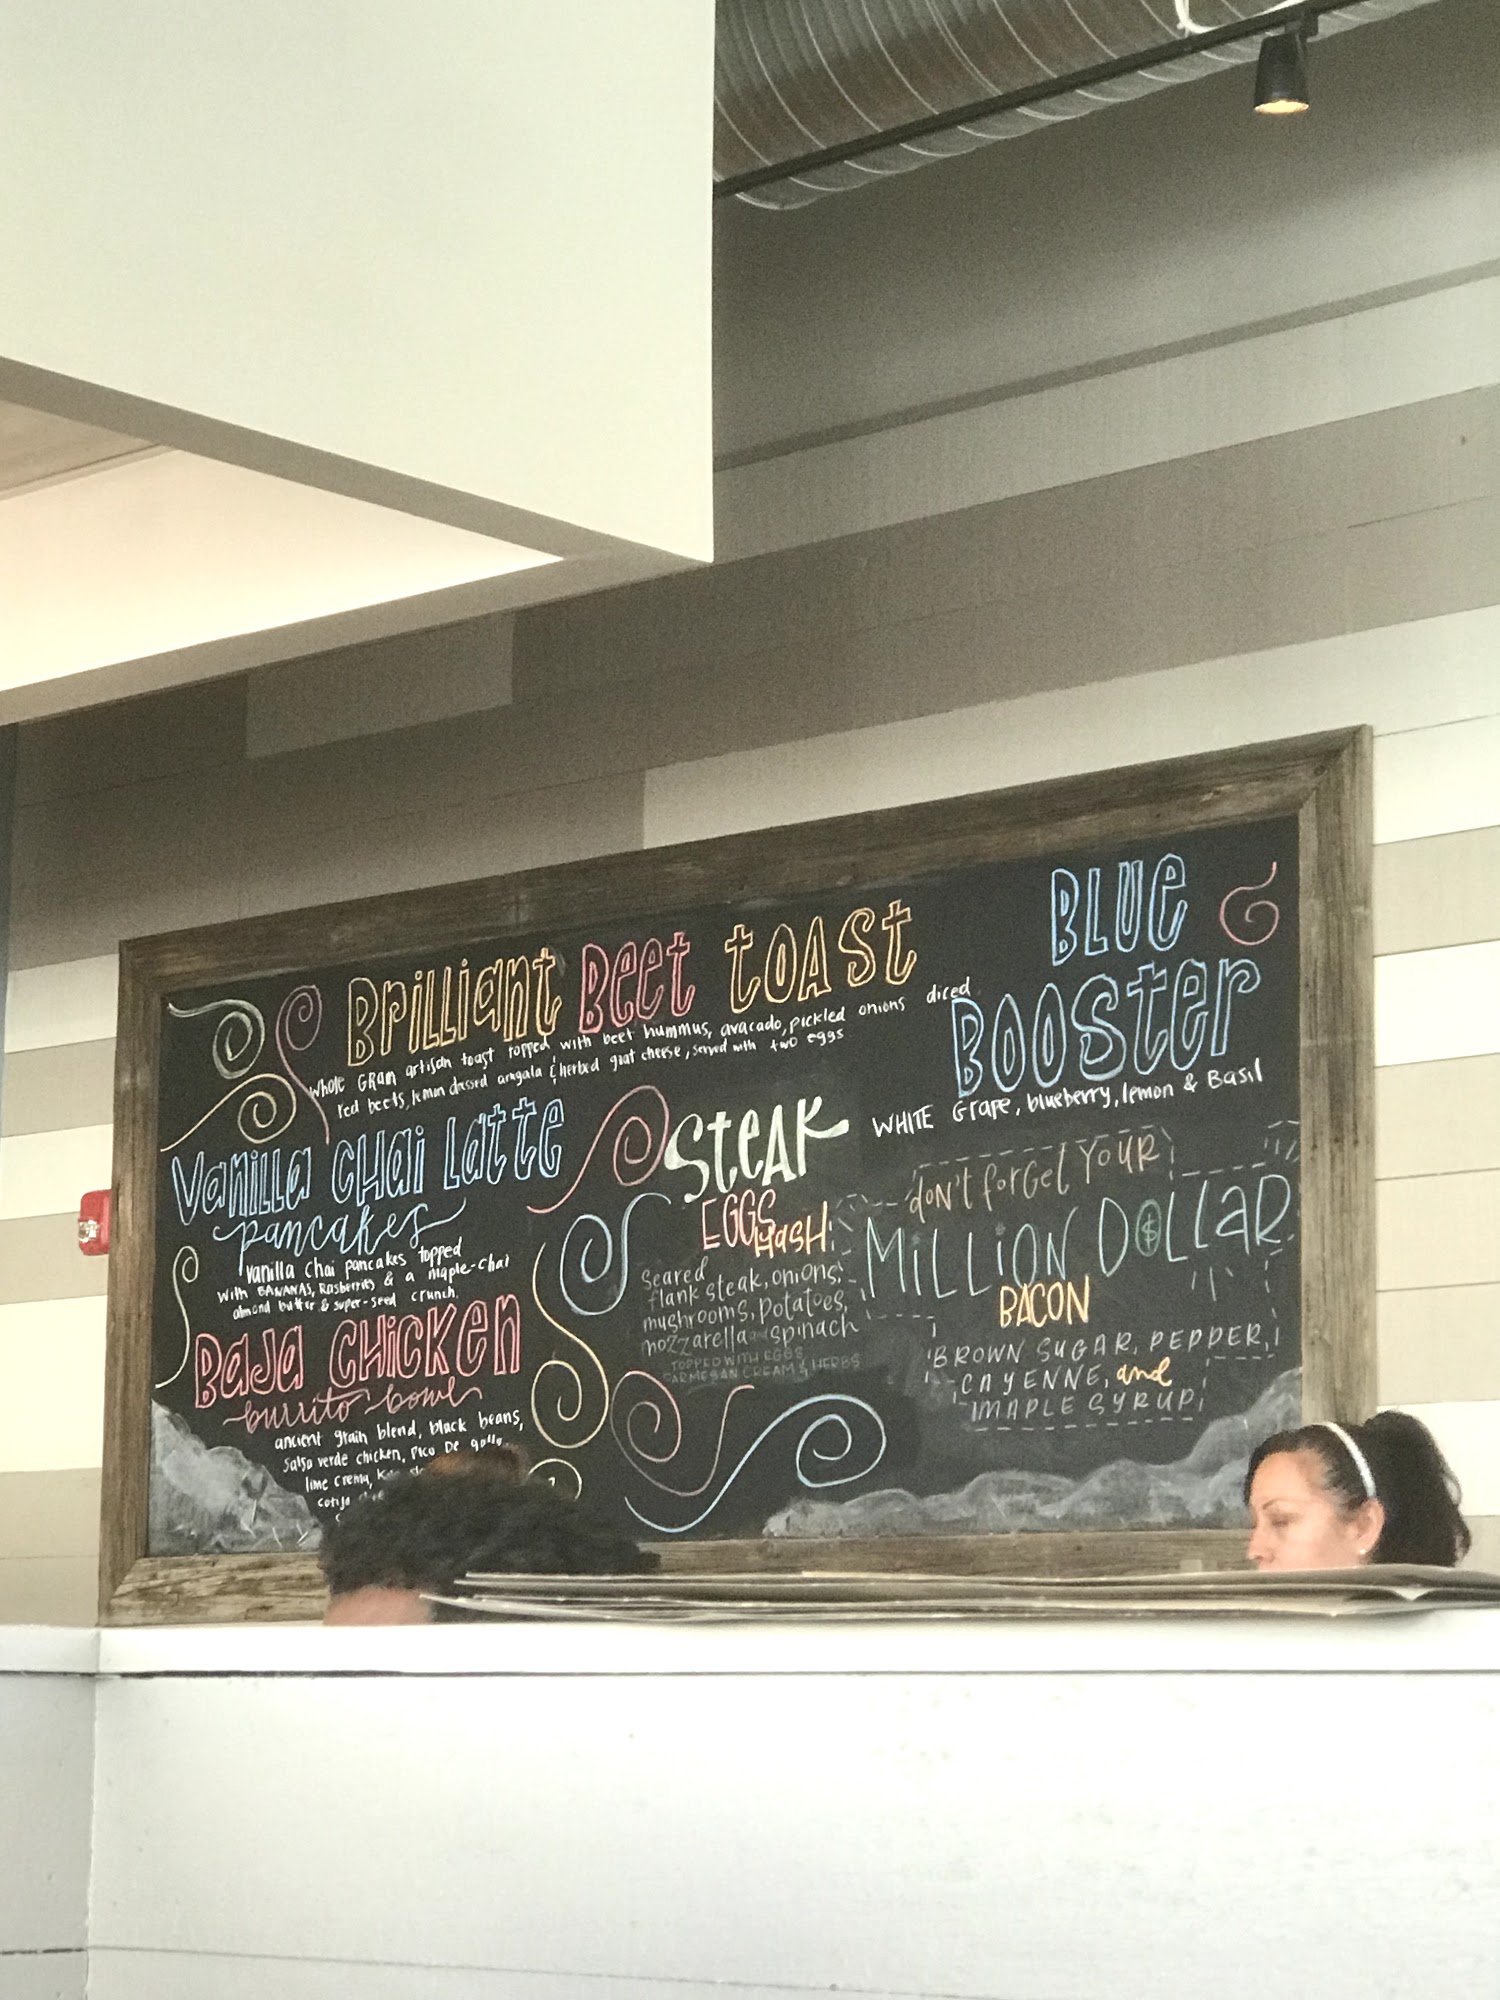 Brilliant Beet toast
whole Grain artisan toast topped with beet hummus, avacado, pickled onions diced
red beets, lemon dressed arugala & herbed goat cheese, served with two eggs
Vanilla CHai Latte
pancakes
vanilla chai pancakes topped
with BANANAS, Rasberries & a maple-chai
almond butter & super-seed crunch.
Baja CHicken
burrito bowl
ancient grain blend, black beans,
salsa verde chicken, Pico De gallo,
lime crema,
Steak
EGGS
Hash
Seared
flank steak, onions,
mushrooms, potatoes,
mozzarella and spinach
TOPPED WITH EGGS
PARMESAN CREAM & HERBS
BLUE
BOOster
WHITE Grape, blueberry, lemon & Basil
don't forget YOUR
MiLLiON DOLLaR
BACON
BROWN SUGAR, PEPPER,
CAYENNE, and
MAPLE SYRUP